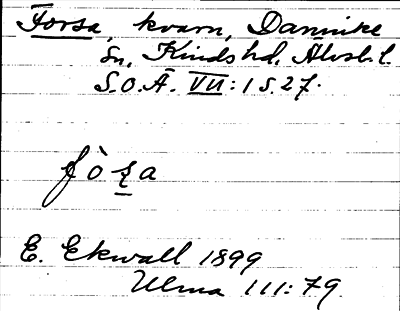 Forsa, kvarn, Dannike
sn, Kinds hd, Älvsb. l.
S.O.Ä. VII:1 s. 27.
E. Ekwall 1899
Ulma 111:79.